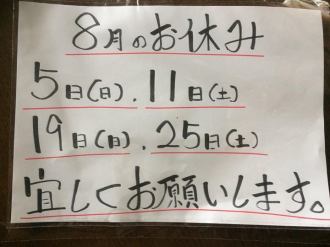 8月のお休み
5日(日).11日(土)
19日(日).25日(土)
宜しくお願いします。